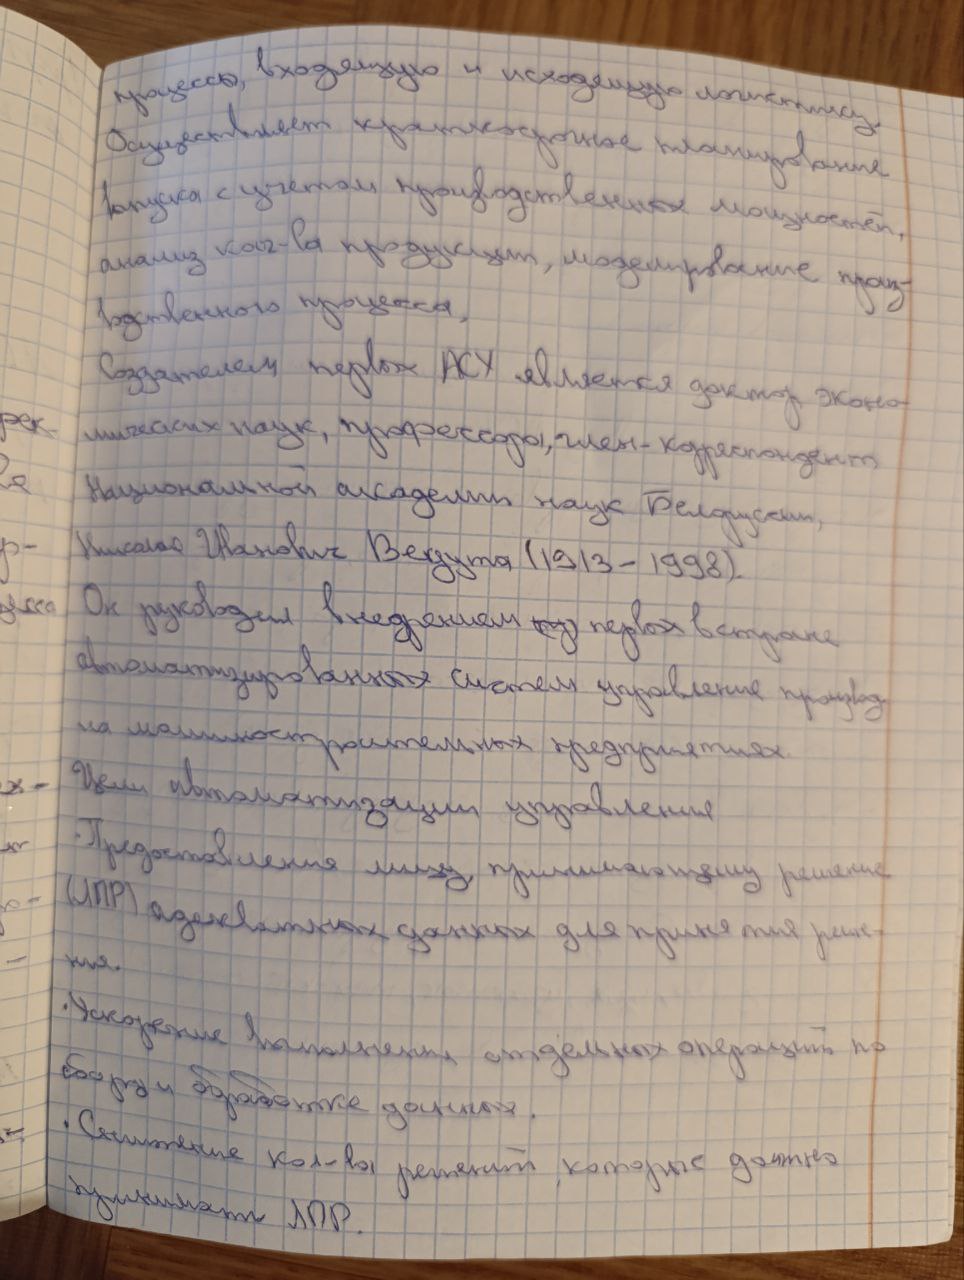 процессы, входящую и исходящую логистику.
Осуществляет краткосрочное планирование
выпуска с учетом производственных мощностей,
анализ кол-ва продукции, моделирование произ-
водственного процесса,
Создателем первых АСУ является доктор эконо-
мических наук, профессоры, член-корреспондент
Национальной академии наук Белоруссии,
Николай Иванович Ведута (1913-1998).
Он руководил внедрением первых в стране
автоматизированных систем управление производ.
на машиностроительных предприятиях.
Цели автоматизации управления
·Предоставления лицу, принимающему решение
(ЛПР) адекватных данных для принятия реше-
ния.
·Ускорение выполнения отдельных операций по
сбору и обработке данных.
·Снижение кол-ва решений, которые должно
принимать ЛПР.